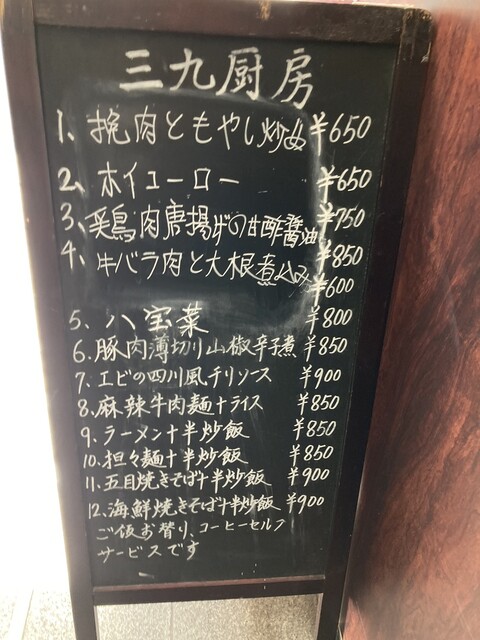 三九厨房
1、挽肉ともやし炒め ¥650
2、ホイコーロー ¥650
3、鶏肉唐揚げの甘酢醬油 ¥750
4、牛バラ肉と大根煮込み ¥850
¥600
5、八宝菜 ¥800
6、豚肉薄切り山椒辛子煮 ¥850
7、エビの四川風チリソース ¥900
8、麻辣牛肉麺+ライス ¥850
9、ラーメン+半炒飯 ¥850
10、担々麺+半炒飯 ¥850
11、五目焼きそば+半炒飯 ¥900
12、海鮮焼きそば+半炒飯 ¥900
ご飯お替り、コーヒーセルフ
サービスです